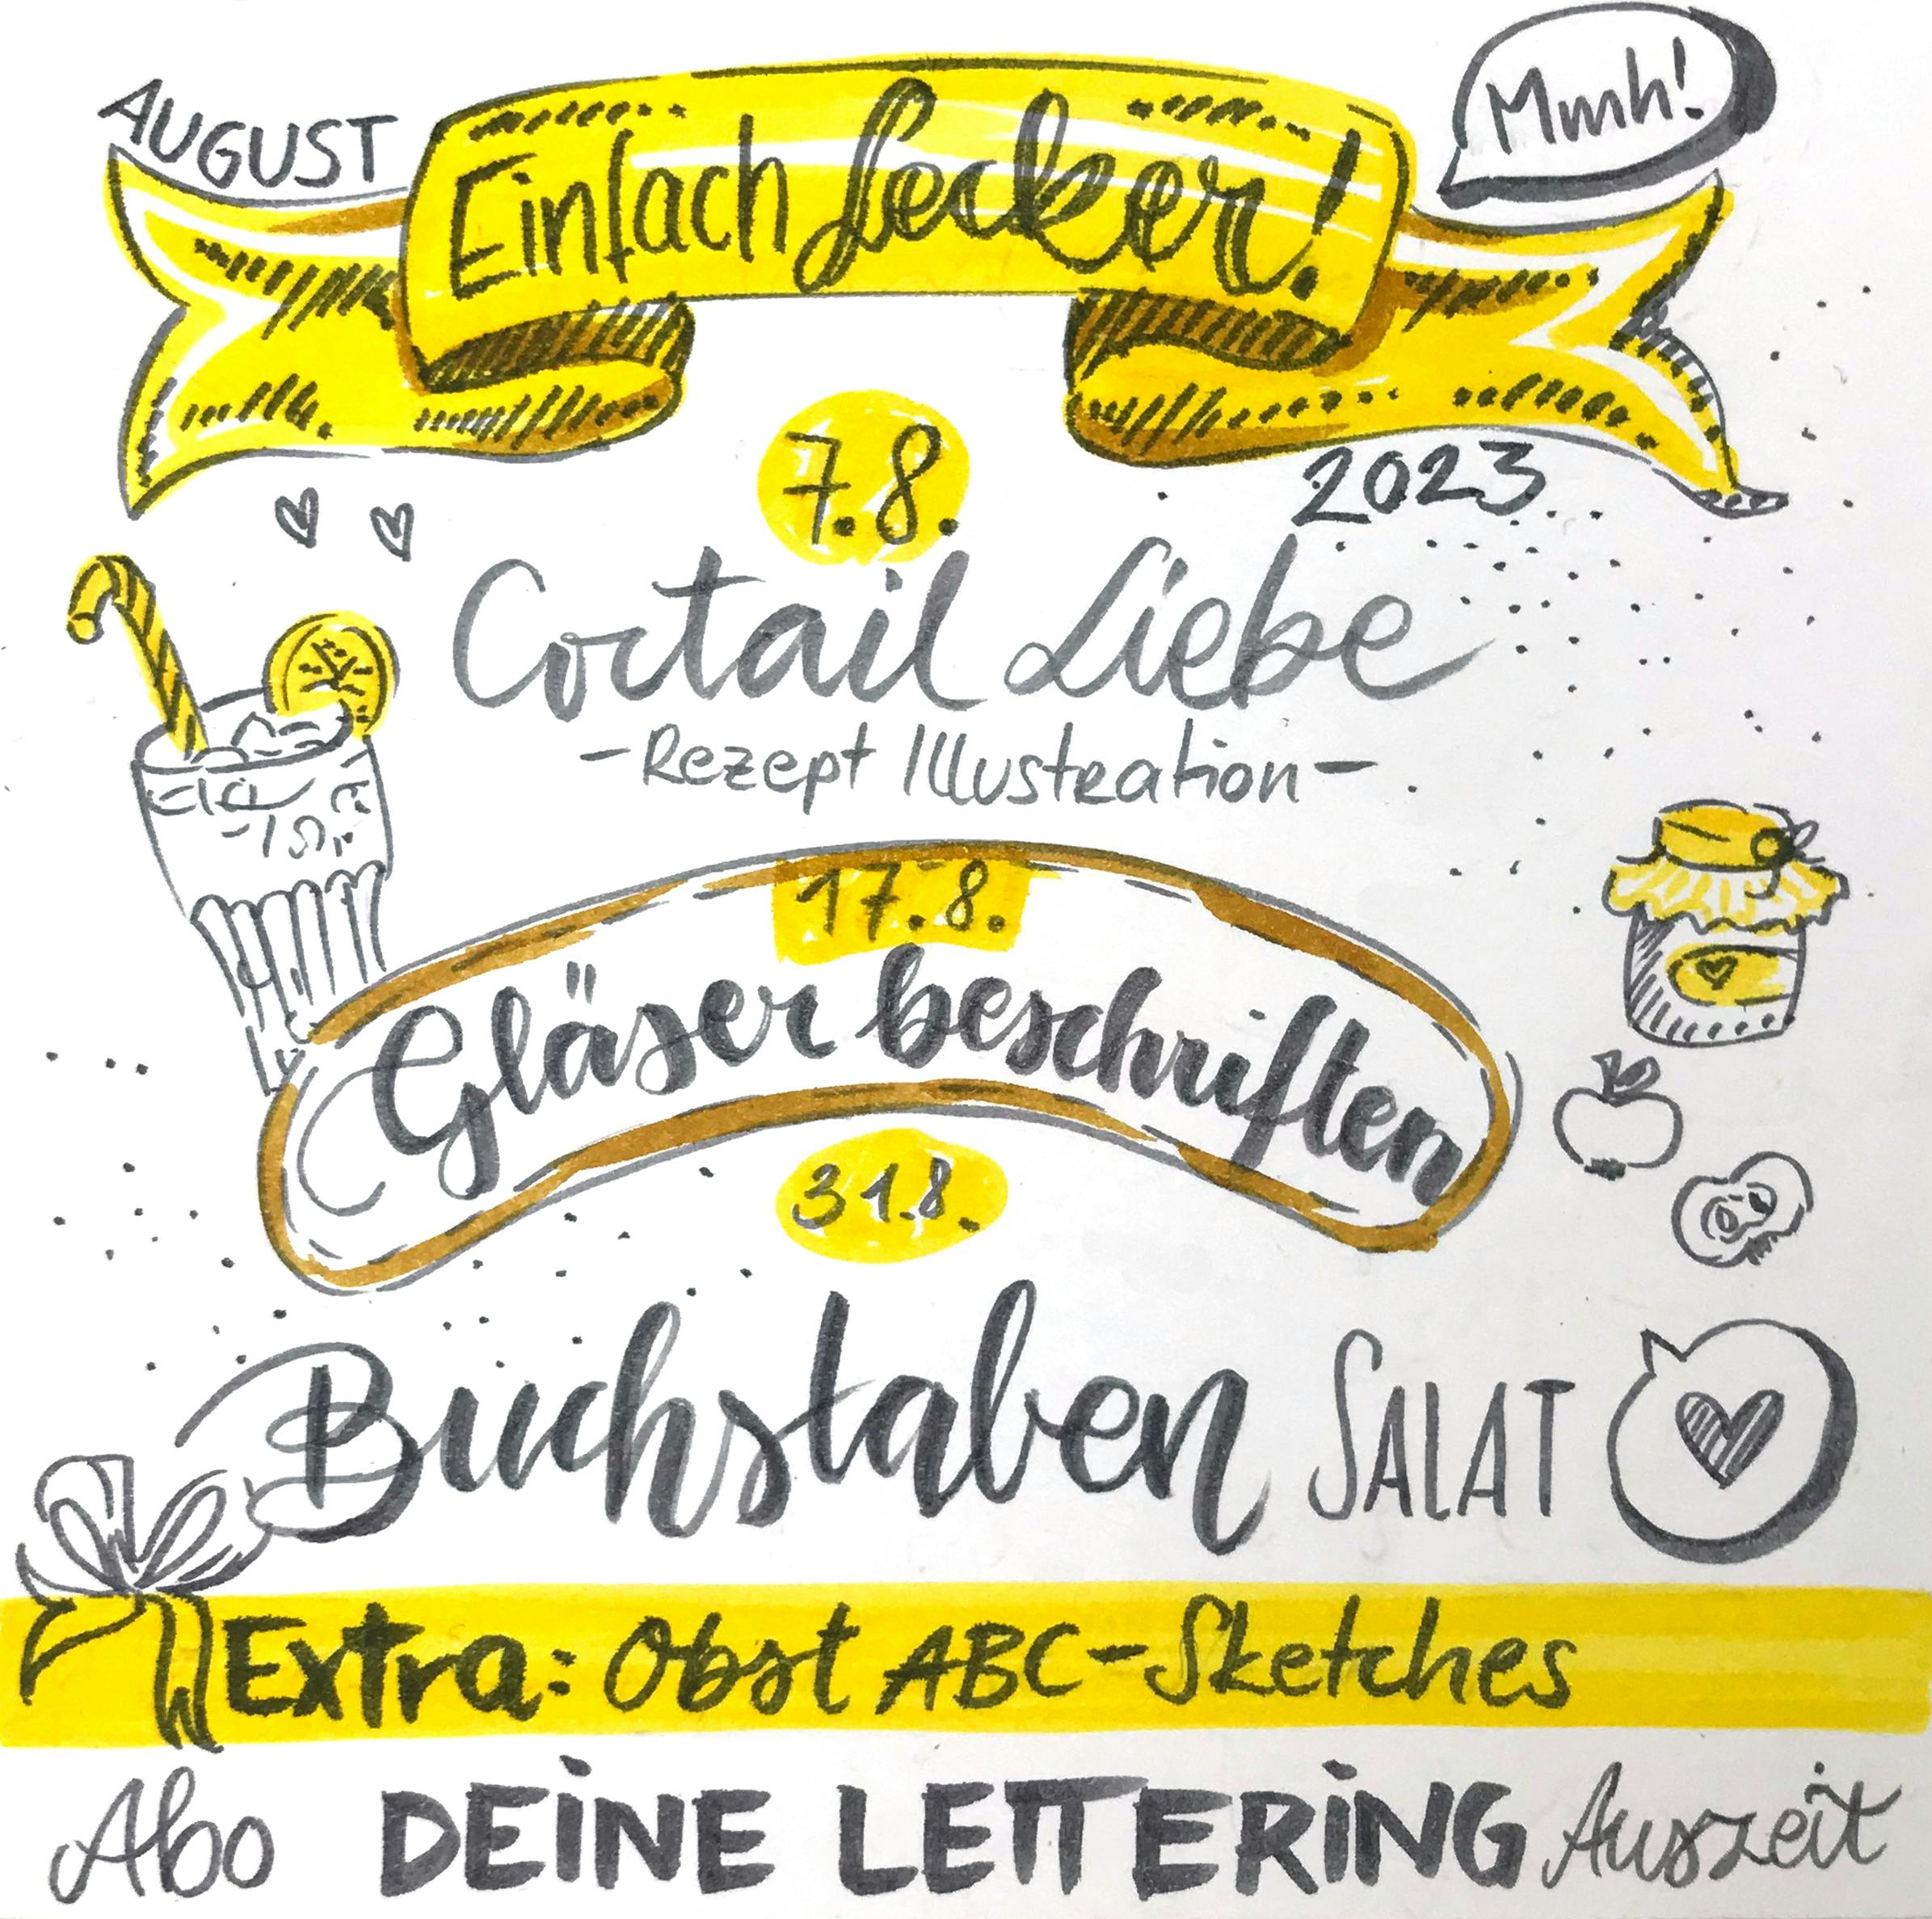 AUGUST
Einfach Lecker!
Mmh!
7.8.
2023
Coctail Liebe
-Rezept Illustration-
17.8.
Gläser beschriften
31.8.
Buchstaben SALAT
Extra: Obst ABC-Sketches
Abo DEiNE LETTERiNG Auszeit